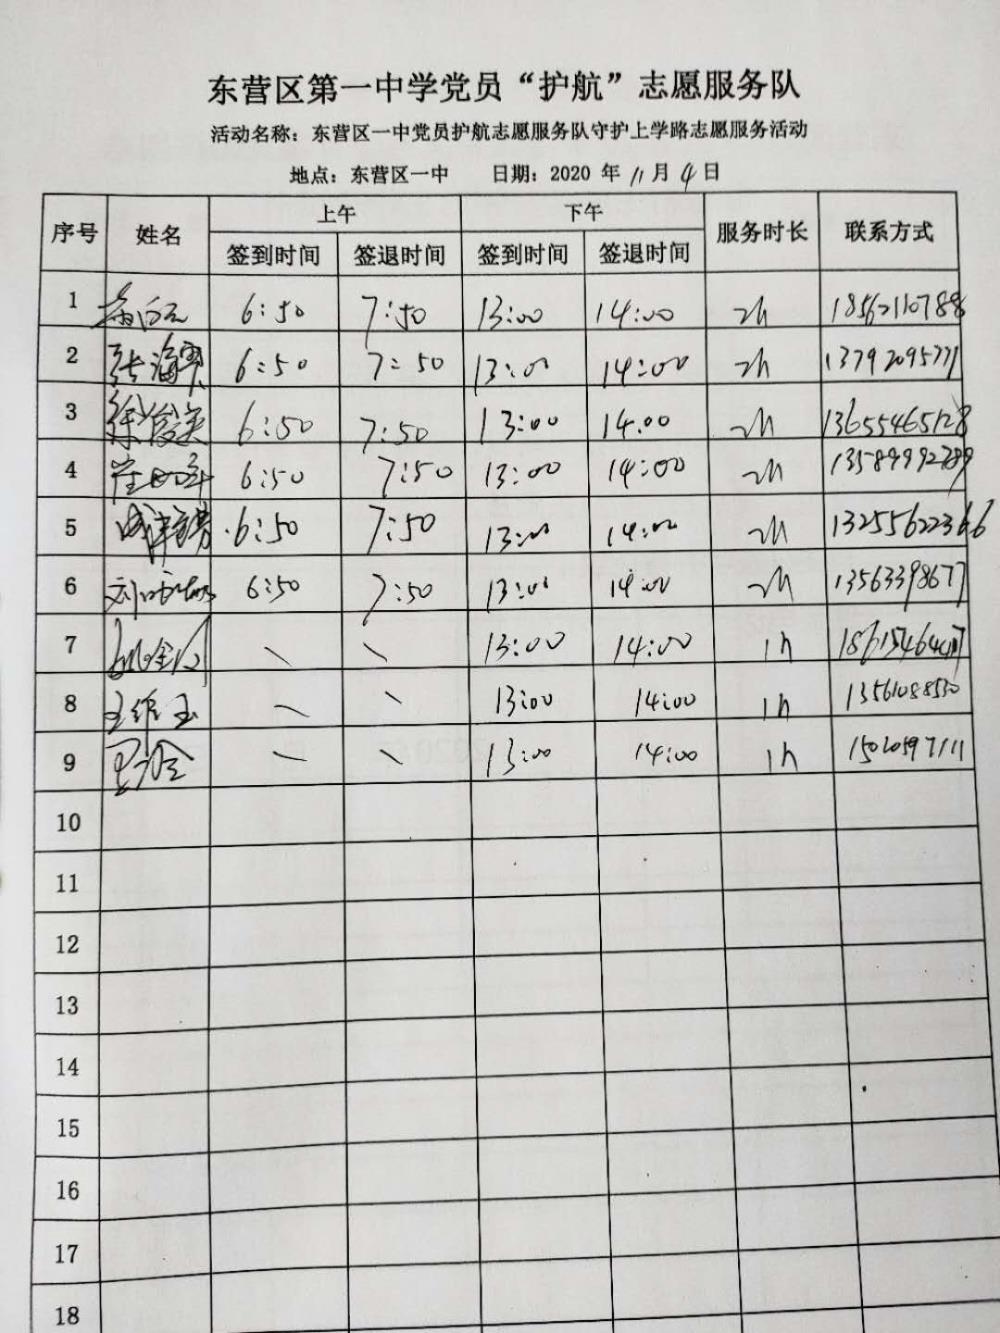 东营区第一中学党员“护航”志愿服务队
活动名称：东营区一中党员护航志愿服务队守护上学路志愿服务活动
地点：东营区一中 日期：2020 年 11 月 4 日
序号 姓名 上午 下午 服务时长 联系方式
签到时间 签退时间 签到时间 签退时间
1 6:50 7:50 13:00 14:00 2h 18562110788
2 张海军 6:50 7:50 13:00 14:00 2h 13792095771
3 徐俊美 6:50 7:50 13:00 14:00 2h 13655465128
4 6:50 7:50 13:00 14:00 2h 13589992789
5 6:50 7:50 13:00 14:00 2h 13255622366
6 6:50 7:50 13:00 14:00 2h 13563398677
7 \ \ 13:00 14:00 1h
8 王维玉 \ \ 13:00 14:00 1h 13561088550
9 \ \ 13:00 14:00 1h 15020597111
10
11
12
13
14
15
16
17
18